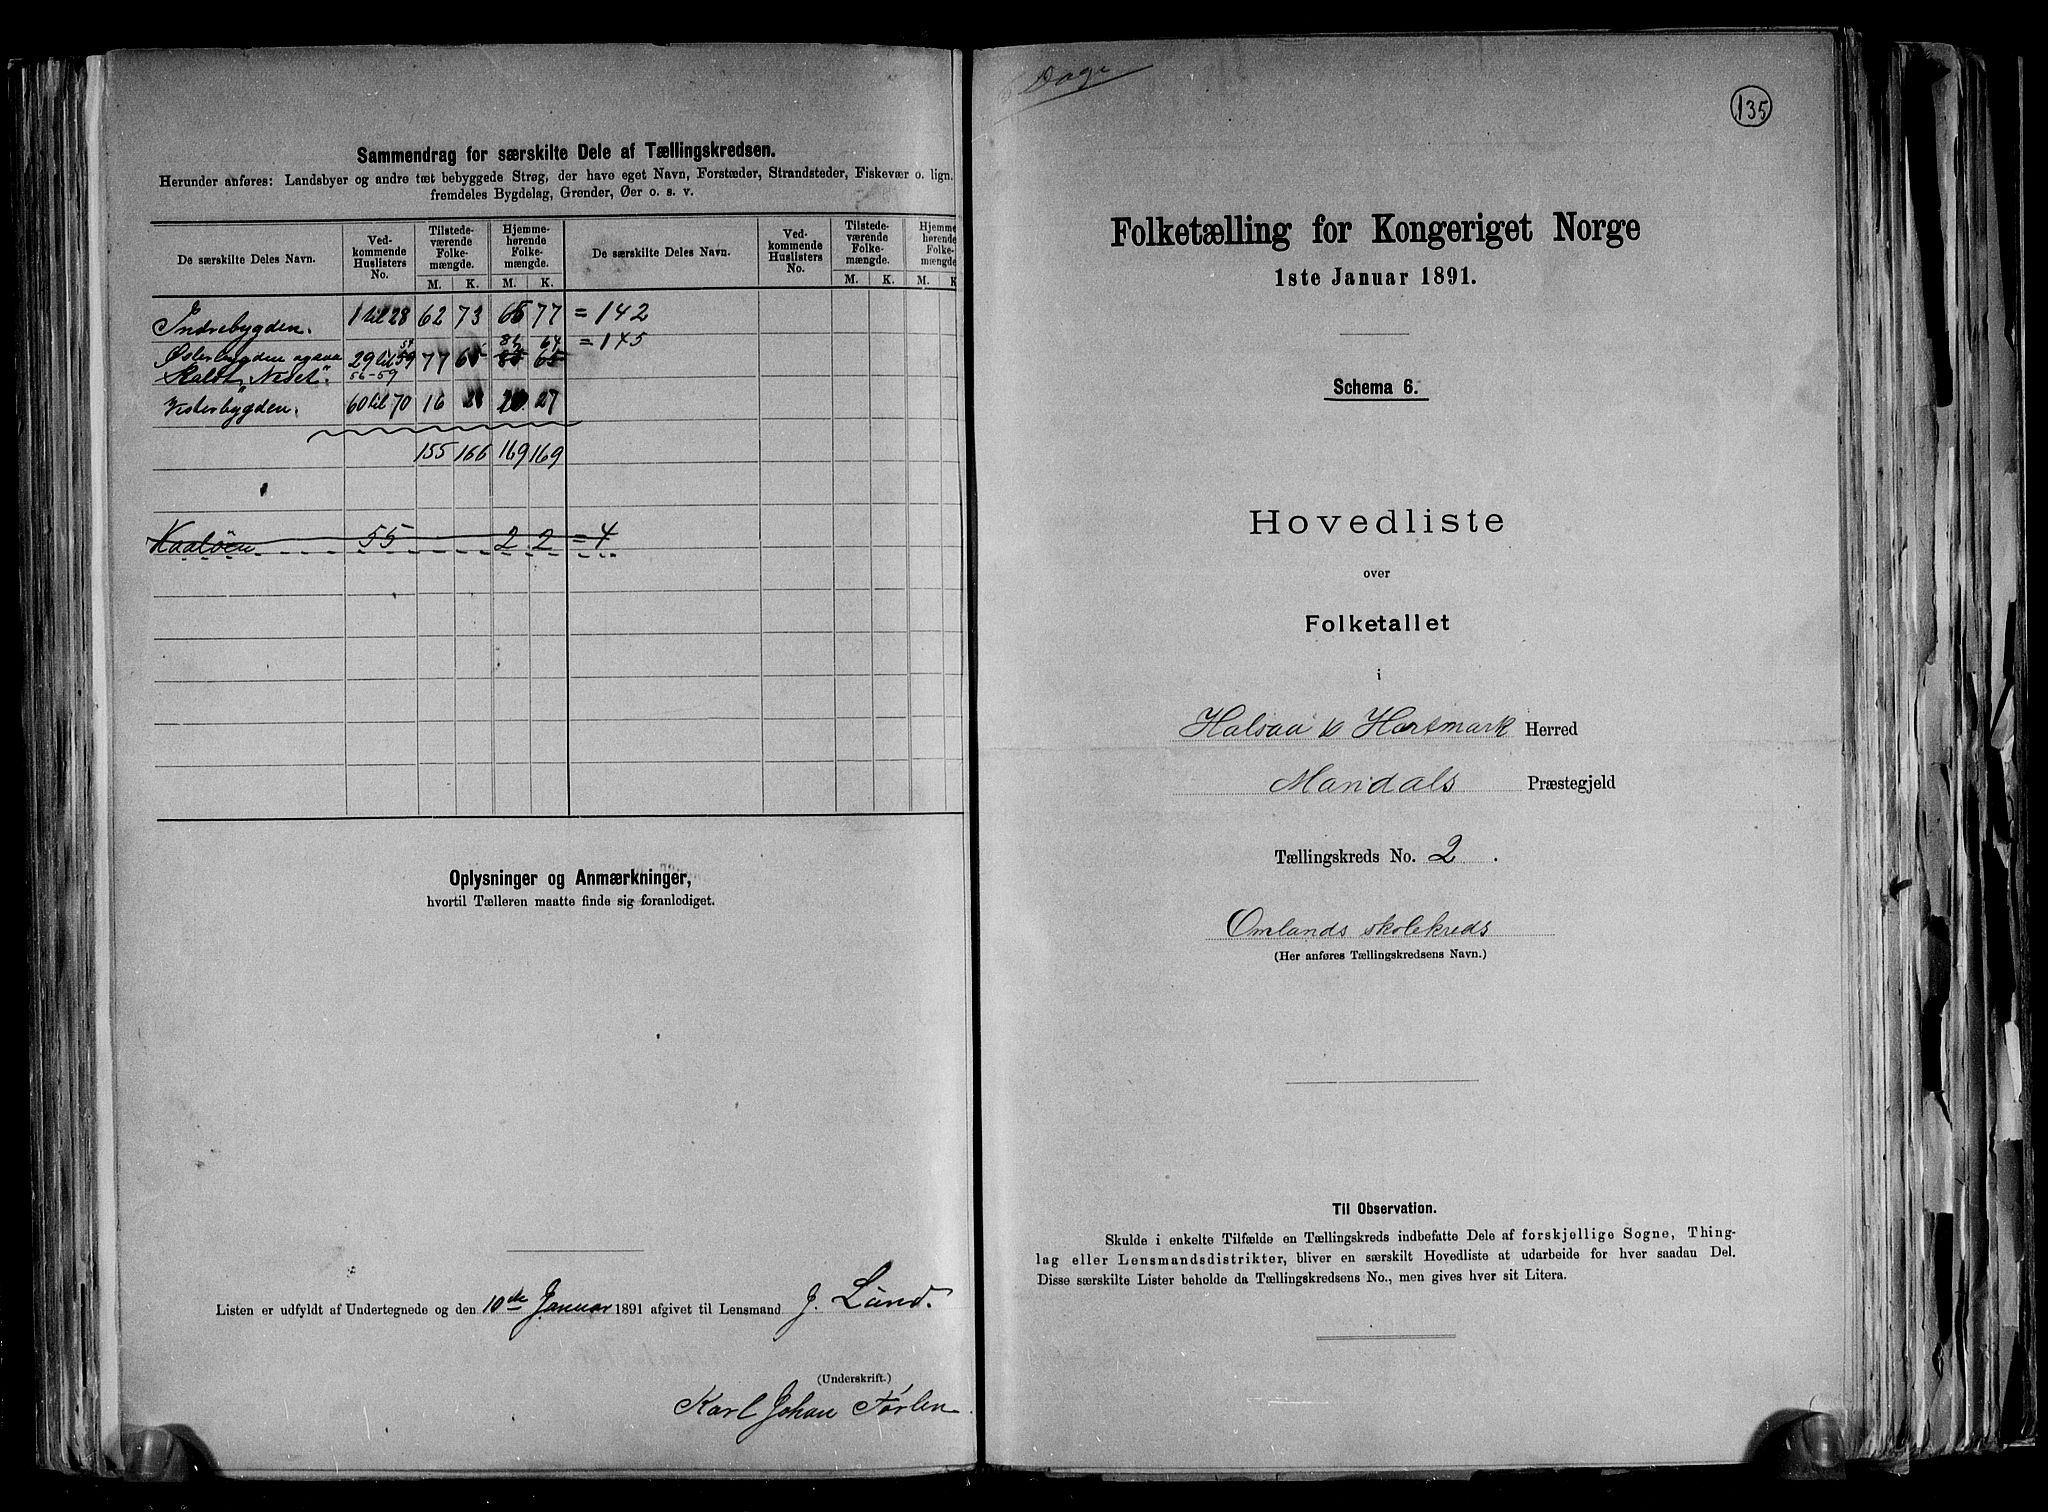 Sammendrag for særskilte Dele af Tællingskredsen.
Herunder anføres: Landsbyer og andre tæt bebyggede Strøg, der have eget Navn, Forstæder, Strandsteder, Fiskevær o. lign.
fremdeles Bygdelag, Grender, Øer o. s. v.
De særskilte Deles Navn. Ved-kommende Huslisters No. Tilstede-værende Folke-mængde. Hjemme-hørende Folke-mængde. De særskilte Deles Navn. Ved-kommende Huslisters No. Tilstede-værende Folke-mængde. Hjemme-hørende Folke-mængde.
M. K. M. K. M. K. M. K.
Indrebygden. 1 til 28 62 73 65 77 = 142
54 64 = 145
Østerbygden 29 til 59 77 65
Kaldt "Neset". 56-59
Vesterbygden. 60 til 70 16 27
155 166 169 169
55 2 2 = 4
Oplysninger og Anmærkninger,
hvortil Tælleren maatte finde sig foranlediget.
Listen er udfyldt af Undertegnede og den 10de Januar 1891 afgivet til Lensmand J. Lund.
(Underskrift.)
Karl Johan Førlen
Dage
135
Folketælling for Kongeriget Norge
1ste Januar 1891.
Schema 6.
Hovedliste
over
Folketallet
i
Halsaa & Hartmark Herred
Mandals Præstegjeld
Tællingskreds No. 2.
Omlands skolekreds
(Her anføres Tællingskredsens Navn.)
Til Observation.
Skulde i enkelte Tilfælde en Tællingskreds indbefatte Dele af forskjellige Sogne, Thing-
lag eller Lensmandsdistrikter, bliver en særskilt Hovedliste at udarbeide for hver saadan Del.
Disse særskilte Lister beholde da Tællingskredsens No., men gives hver sit Litera.